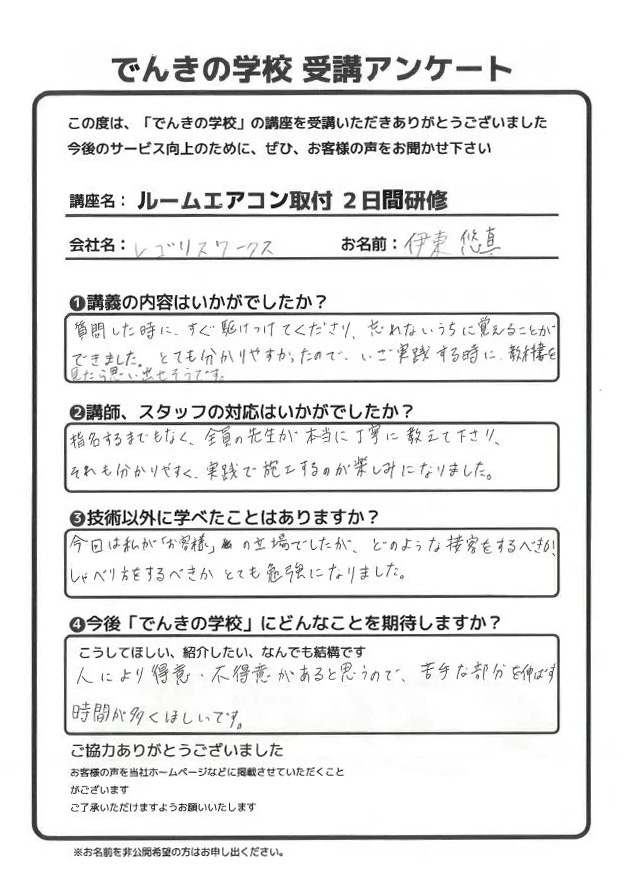 でんきの学校 受講アンケート
この度は、「でんきの学校」の講座を受講いただきありがとうございました
今後のサービス向上のために、ぜひ、お客様の声をお聞かせ下さい
講座名： ルームエアコン取付 2日間研修
会社名： レゴリスワークス お名前： 伊東 悠真
❶講義の内容はいかがでしたか？
質問した時に、すぐ駆けつけてくださり、忘れないうちに覚えることが
できました。とても分かりやすかったので、いざ実践する時に、教科書を
見たら思い出せそうです。
❷講師、スタッフの対応はいかがでしたか？
指名するまでもなく、全員の先生が本当に丁寧に教えて下さり、
それも分かりやすく、実践で施工するのが楽しみになりました。
❸技術以外に学べたことはありますか？
今回は私が「お客様」の立場でしたが、どのような接客をするべきか、
しゃべり方をするべきかとても勉強になりました。
❹今後「でんきの学校」にどんなことを期待しますか？
こうしてほしい、紹介したい、なんでも結構です
人により得意・不得意があると思うので、苦手な部分を伸ばす
時間が多くほしいです。
ご協力ありがとうございました
お客様の声を当社ホームページなどに掲載させていただくこと
がございます
ご了承いただけますようお願いいたします
※お名前を非公開希望の方はお申し出ください。